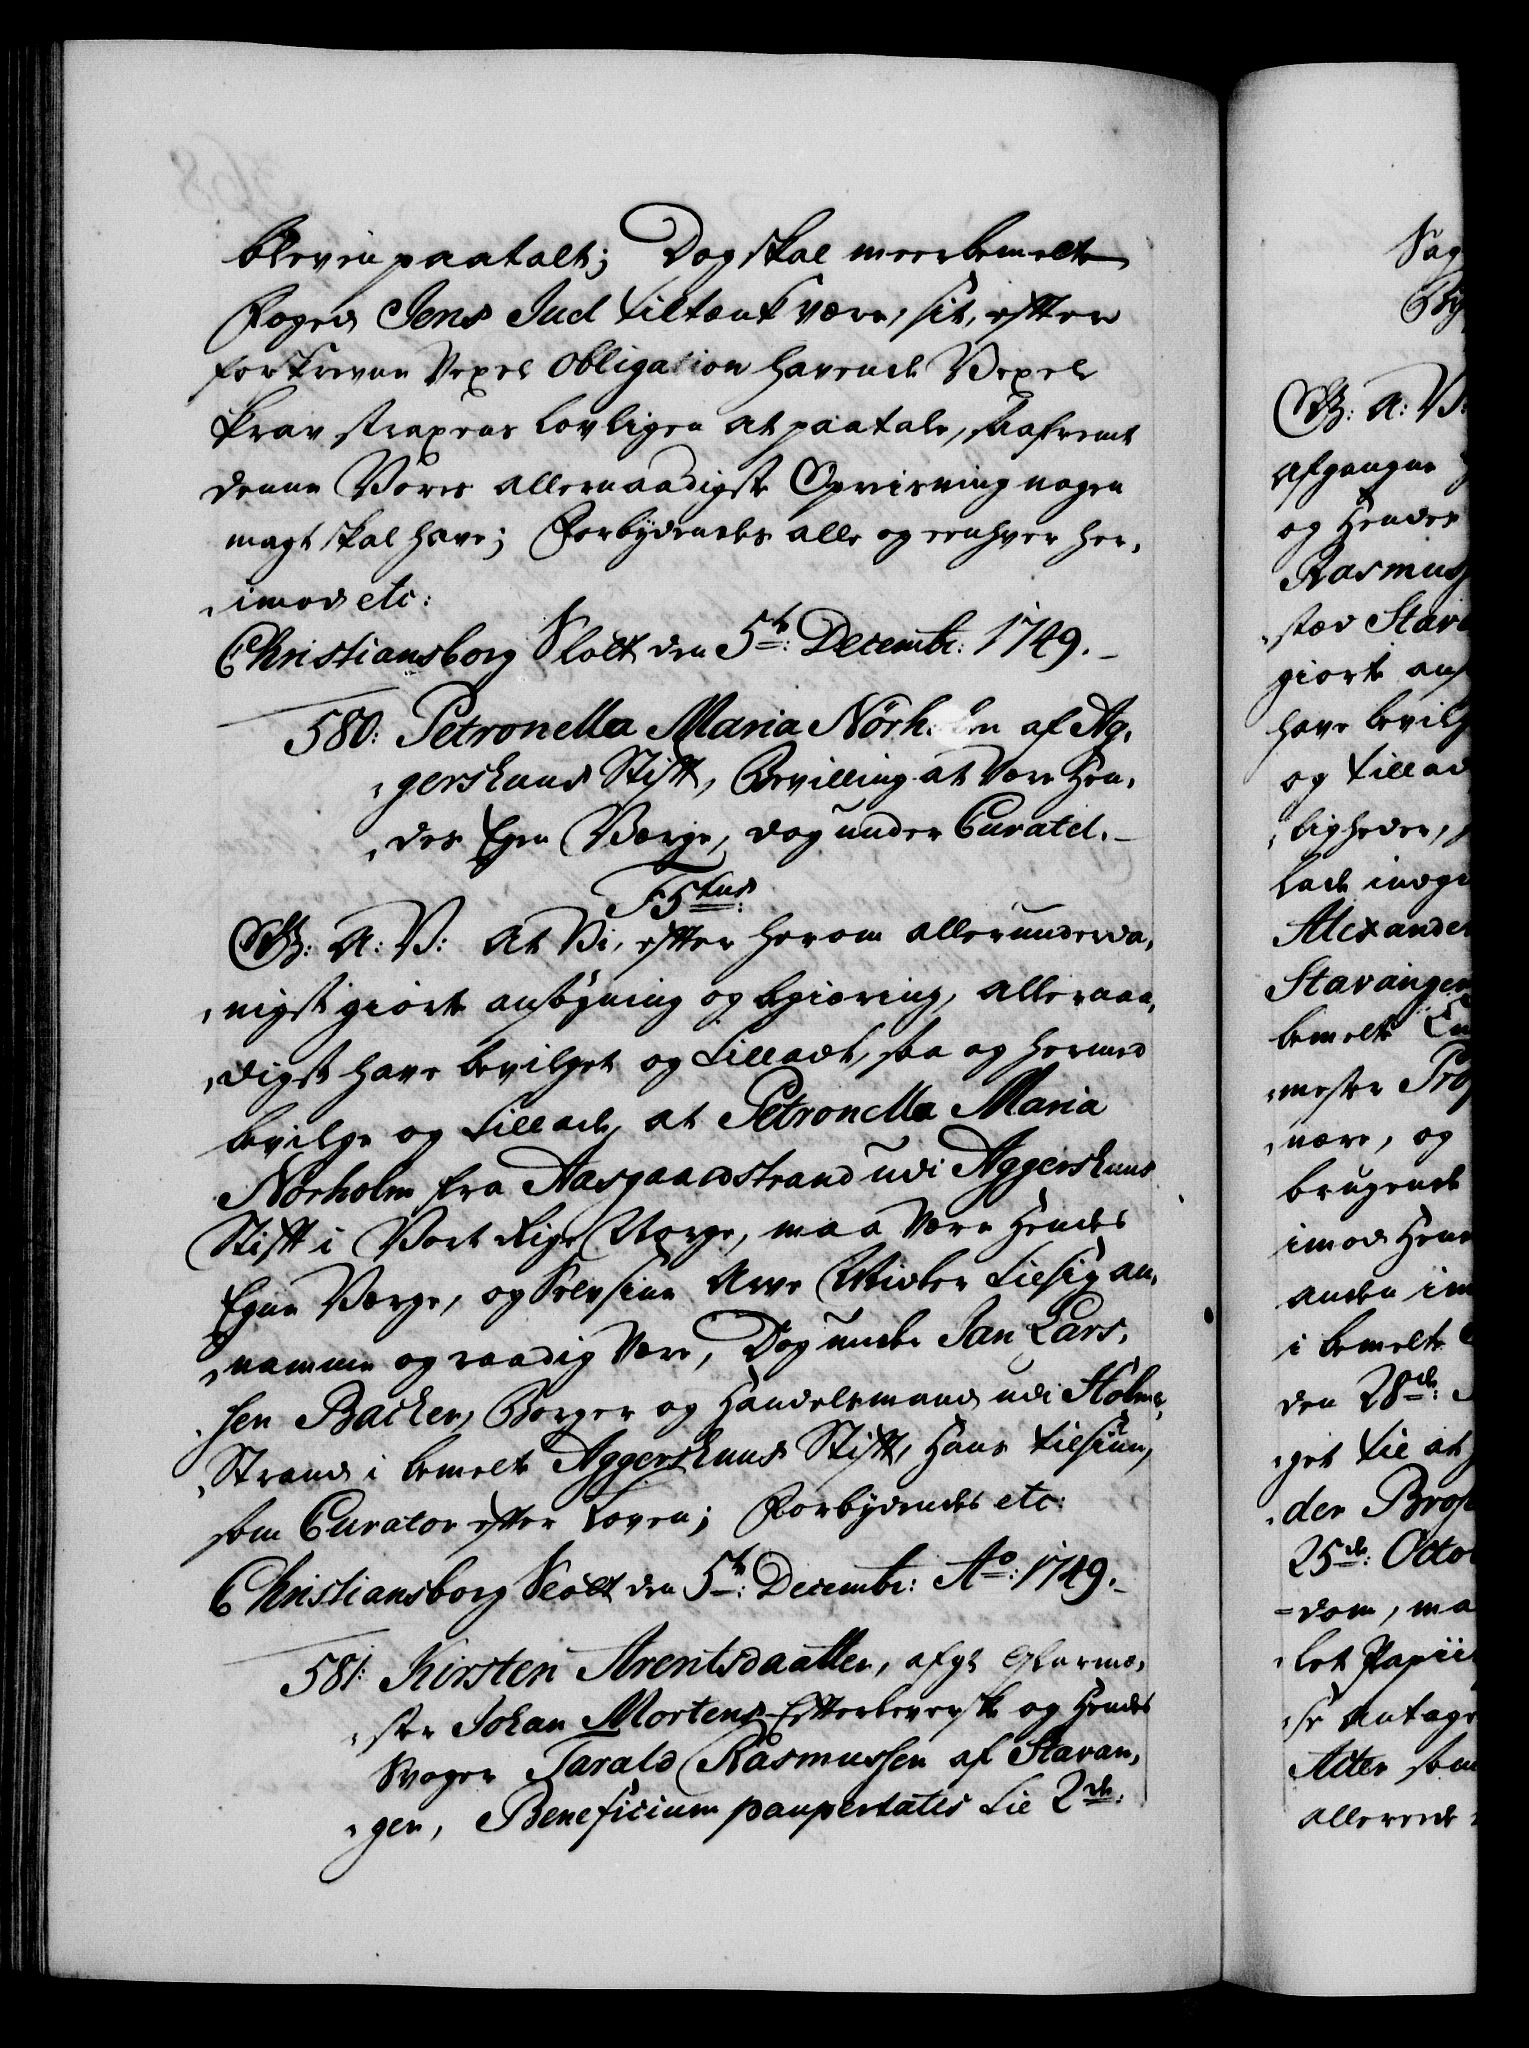 bleven paatalt; Dog skal meerbemelte
Foged Jens Juel tiltænkt være, sit, efter
forskrevne Vexel Obligation havende Vexel
krav strapens lovligen at paatale, saafremt
denne Vores allernaadigste Opreisning nogen
magt skal have; Forbydendes alle og eenhver her,
,imod etc:
Christiansborg Slott den 5te: Decembr: 1749.
580: Petronella Maria Nörholm af Ag,
,gershuus Stift, Bevilling at være Hen,
,des Egen Værge, dog under Curatel.
F5tus
G: A: V: At Vi, efter herom allerunderda,
,nigst giorte ansögning og begiæring, allernaa,
,digst have bevilget og tilladt, saa og hermed
bevilge og tillade, at Petronella Maria
Nörholm fra Aasgaardstrand udi Aggershuus
Stift i Vort Rige Norge, maa være Hendes
Egen Værge, og Selv sine Arve Midler til sig an,
,namme og raadig være, Dog under Jan Lars,
,sen Backer, Borger og Handelsmand udi Holme,
,Strand i bemelte Aggershuus Stift, Hans tilsiun,
som Curator efter Loven; Forbydendes etc:
Christiansborg Slott den 5te: Decembr: Ao: 1749.
581: Kirsten Arentsdaatter, afg: Glarme,
,ster Johan Mortens Efterleverske og Hendes
Svoger Tarald Rasmussen af Stavan,
,ger, Beneficium paupertatis til 2de:
Sag
G: A: V:
afgangne
og Hendes
Rasmus
,sted Stava
giorte ans
have bevilg
og tillad
,ligheder,
lade indgi
Alexander
Stavanger
bemelte
,mester Pro
,nere, og
brugende
imod Hen
anden im
i bemelte
den 28de:
,get til at
,der
25de: Octo
=dom, ma
,let Papiir
,se Antage
Acter som
allerede